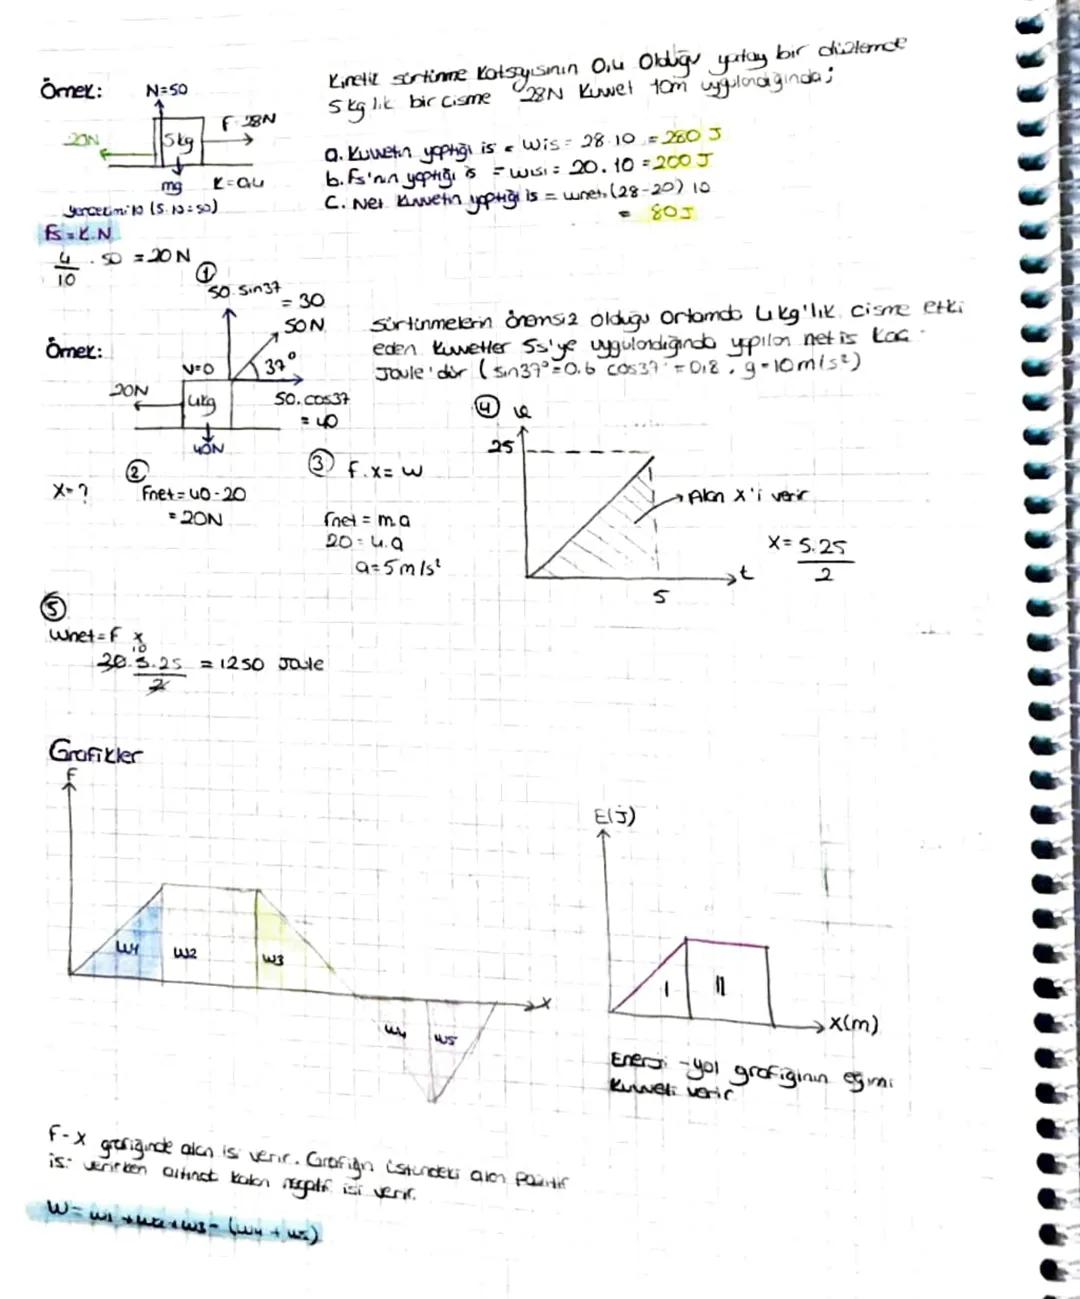 Örnek:
N=50
20N
5kg
F=28N
mg
k=0,4
yerçekimi 10 (5.10=50)
Fs=k.N
4/10 . 50 = 20N
Kinetik sürtünme katsayısının 0,4 olduğu yatay bir düzlemde
5 kg lık bir cisme 28N kuvvet 10m uygulandığında;
a. Kuvvetin yaptığı iş = Wiş = 28.10 = 280 J
b. Fs'nin yaptığı iş = Wısı = 20.10 = 200 J
C. Net kuvvetin yaptığı iş = Wnet. (28-20) 10
= 80J
①
50.sin37
= 30
50N
37°
Örnek:
V=0
20N
4kg
50.cos37
= 40
40N
Sürtünmelerin önemsiz olduğu ortamda 4 kg'lık cisme etki
eden kuvvetler 5s'ye uygulandığında yapılan net iş kaç
Joule'dür (sin37°=0.6 cos37°=0,8, g=10m/s²)
X=?
②
Fnet=40-20
=20N
③ F.x=W
Fnet = m.a
20 = 4.a
a=5m/s²
④ V
25
Alan X'i verir
t
5
X= 5.25/2
⑤
Wnet=F x
10
20.5.25/2 = 1250 Joule
Grafikler
F
W1
W2
W3
X
W4
W5
E(J)
I
II
X(m)
Enerji-yol grafiğinin eğimi
kuvveti verir
F-X grafiğinde alan işi verir. Grafiğin üstündeki alan pozitif
işi verirken altında kalan negatif işi verir.
W=W1+W2+W3-(W4+W5)